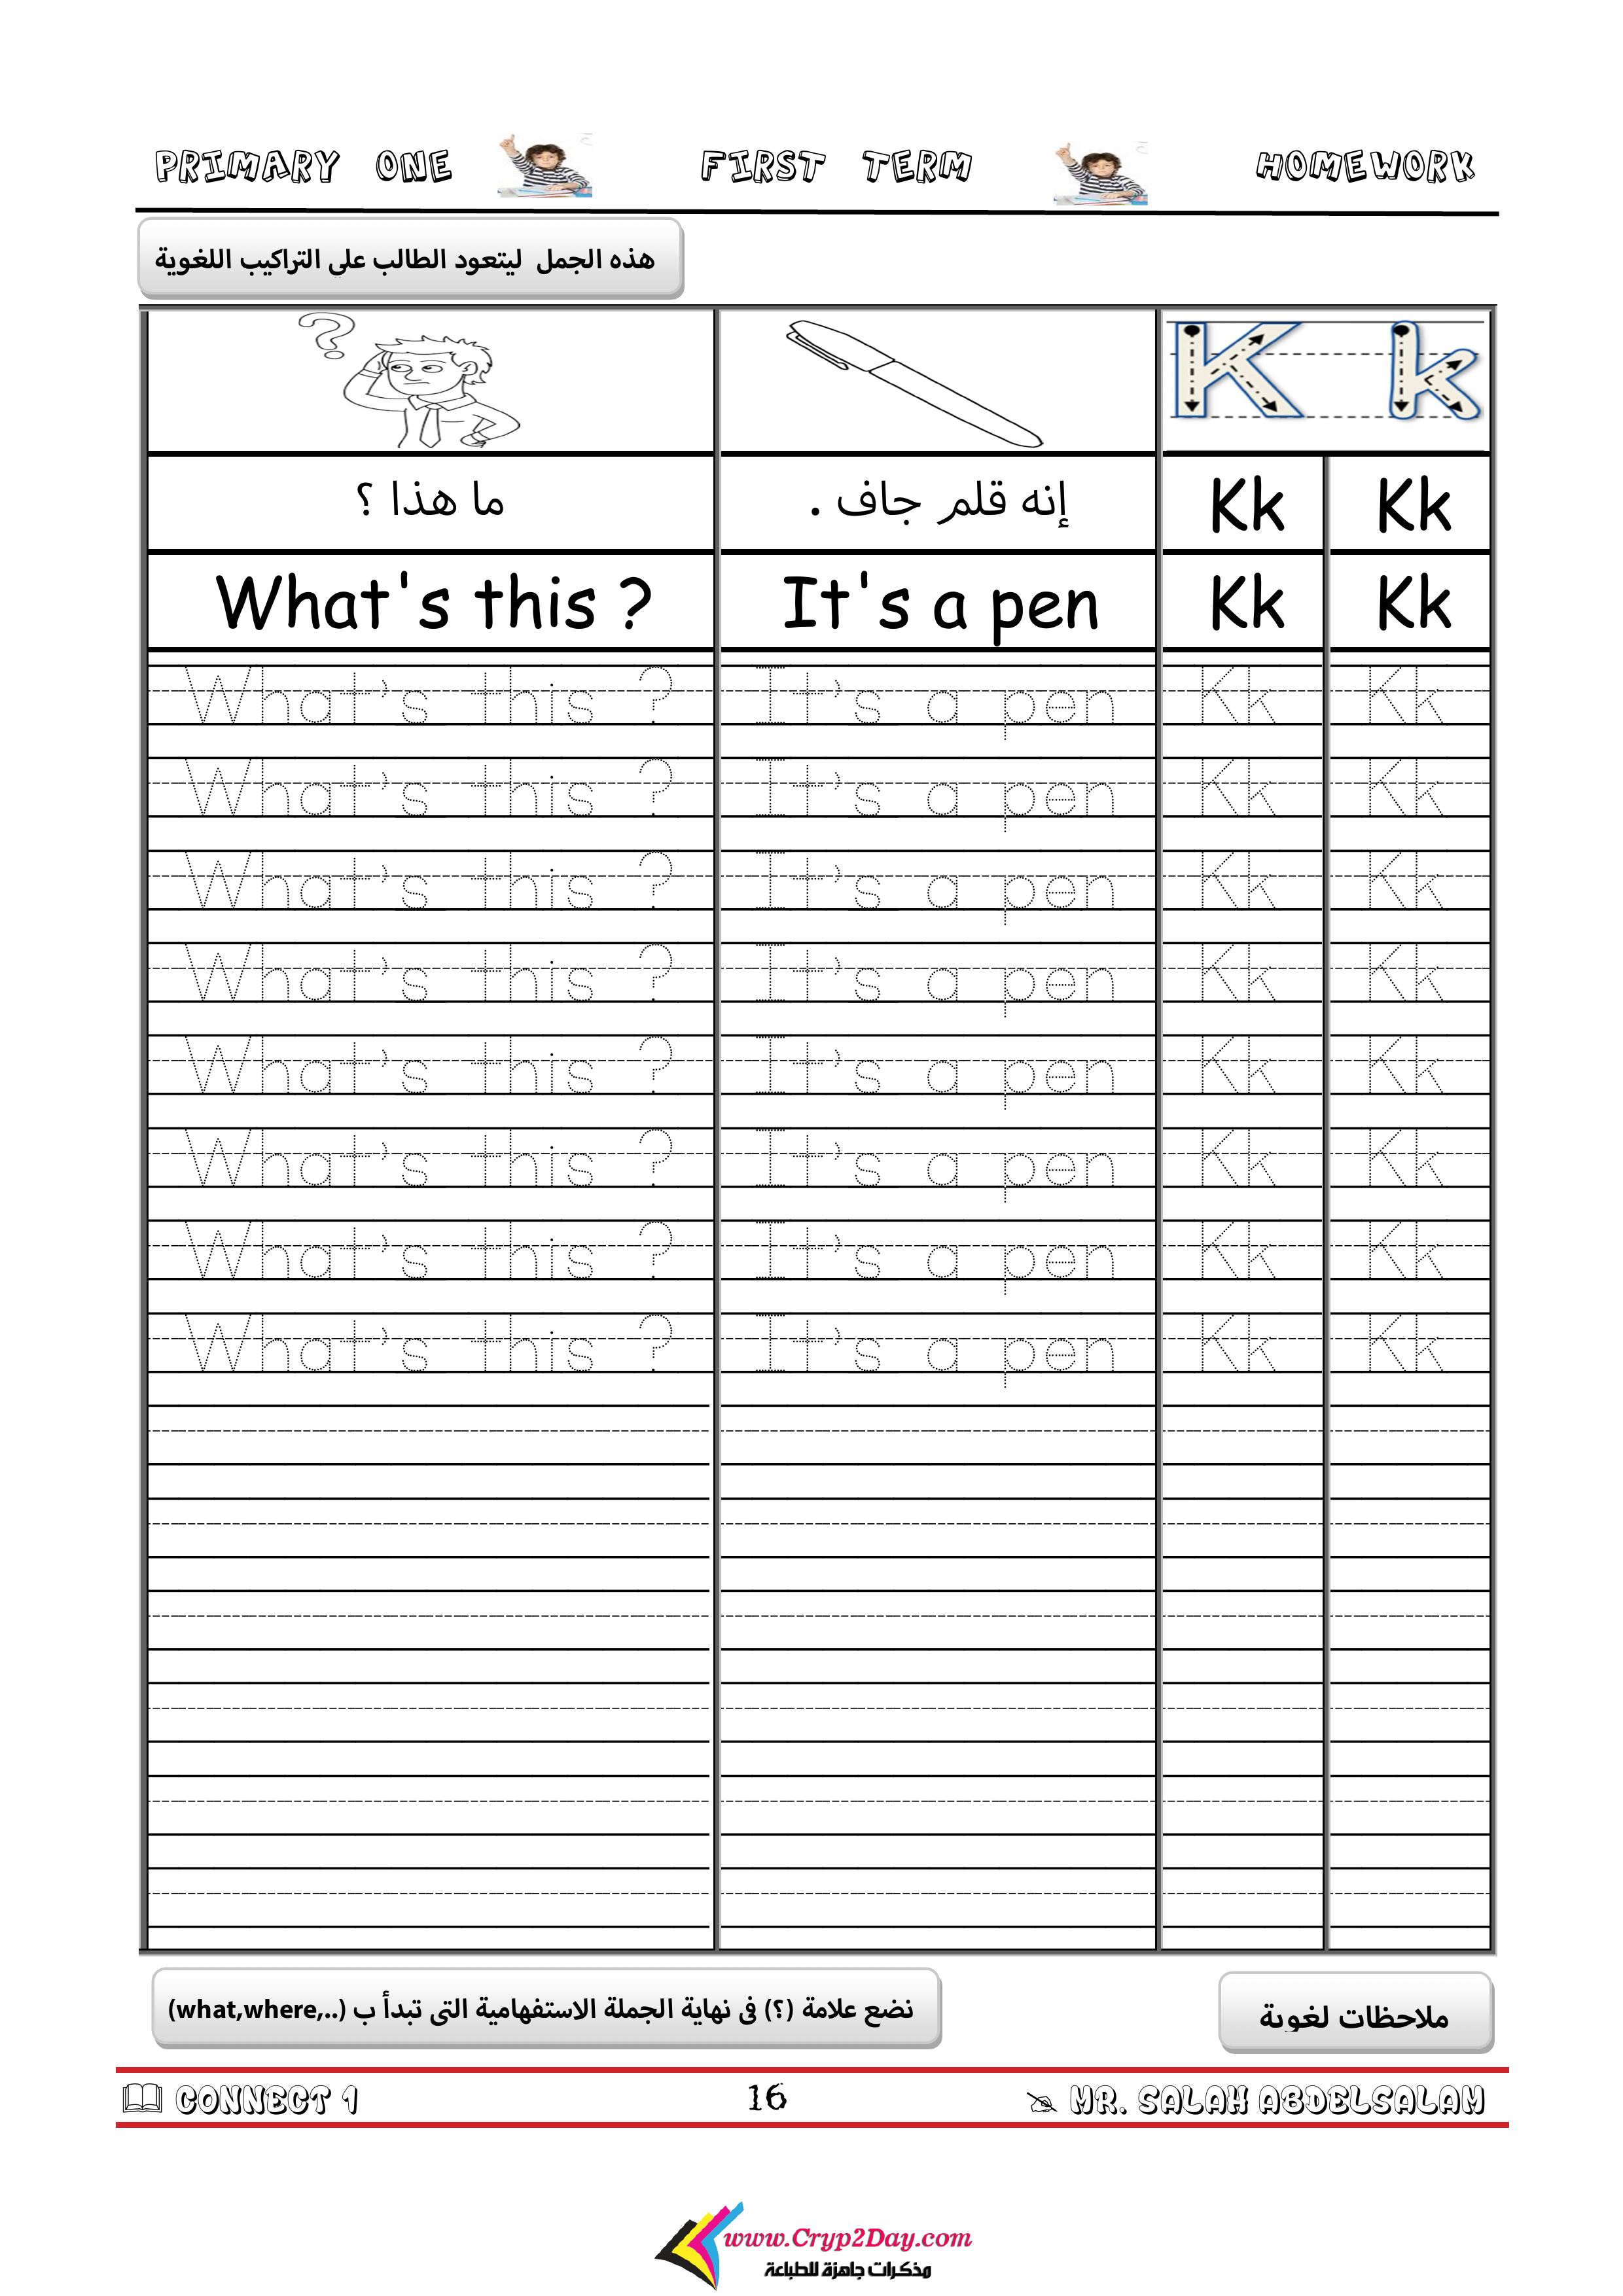 PRIMARY ONE FIRST TERM HOMEWORK
هذه الجمل ليتعود الطالب على التراكيب اللغوية
K k
ما هذا ؟ إنه قلم جاف . Kk Kk
What's this ? It's a pen Kk Kk
What's this ? It's a pen Kk Kk
What's this ? It's a pen Kk Kk
What's this ? It's a pen Kk Kk
What's this ? It's a pen Kk Kk
What's this ? It's a pen Kk Kk
What's this ? It's a pen Kk Kk
What's this ? It's a pen Kk Kk
What's this ? It's a pen Kk Kk
ملاحظات لغوية
نضع علامة (؟) فى نهاية الجملة الاستفهامية التى تبدأ ب (what,where,..)
CONNECT 1 16 MR. SALAH ABDELSALAM
www.Cryp2Day.com
مذكرات جاهزة للطباعة